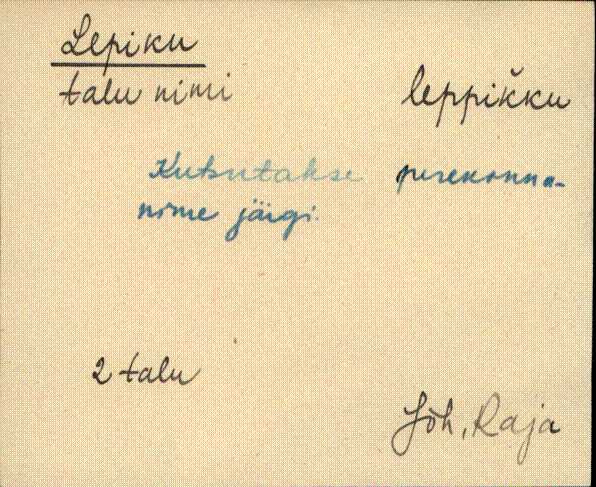 Lepiku
talu nimi leppikku
Kutsutakse perekonna-
nime järgi.
2 talu
Jõh, Raja